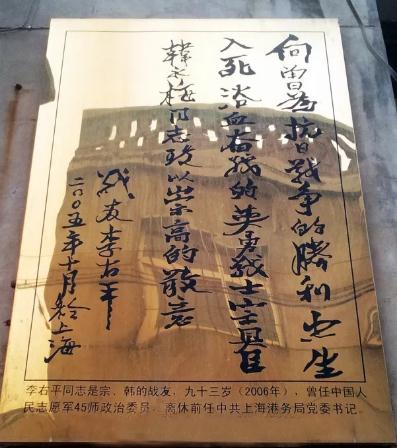 向曾為抗日战争的勝利出生
入死浴血奋战的英勇战士
韓同志致以崇高的敬意
战友李右平
二〇〇五年十月於上海
李右平同志是宗、韩的战友，九十三岁（2006年），曾任中国人
民志愿军45师政治委员，离休前任中共上海港务局党委书记。